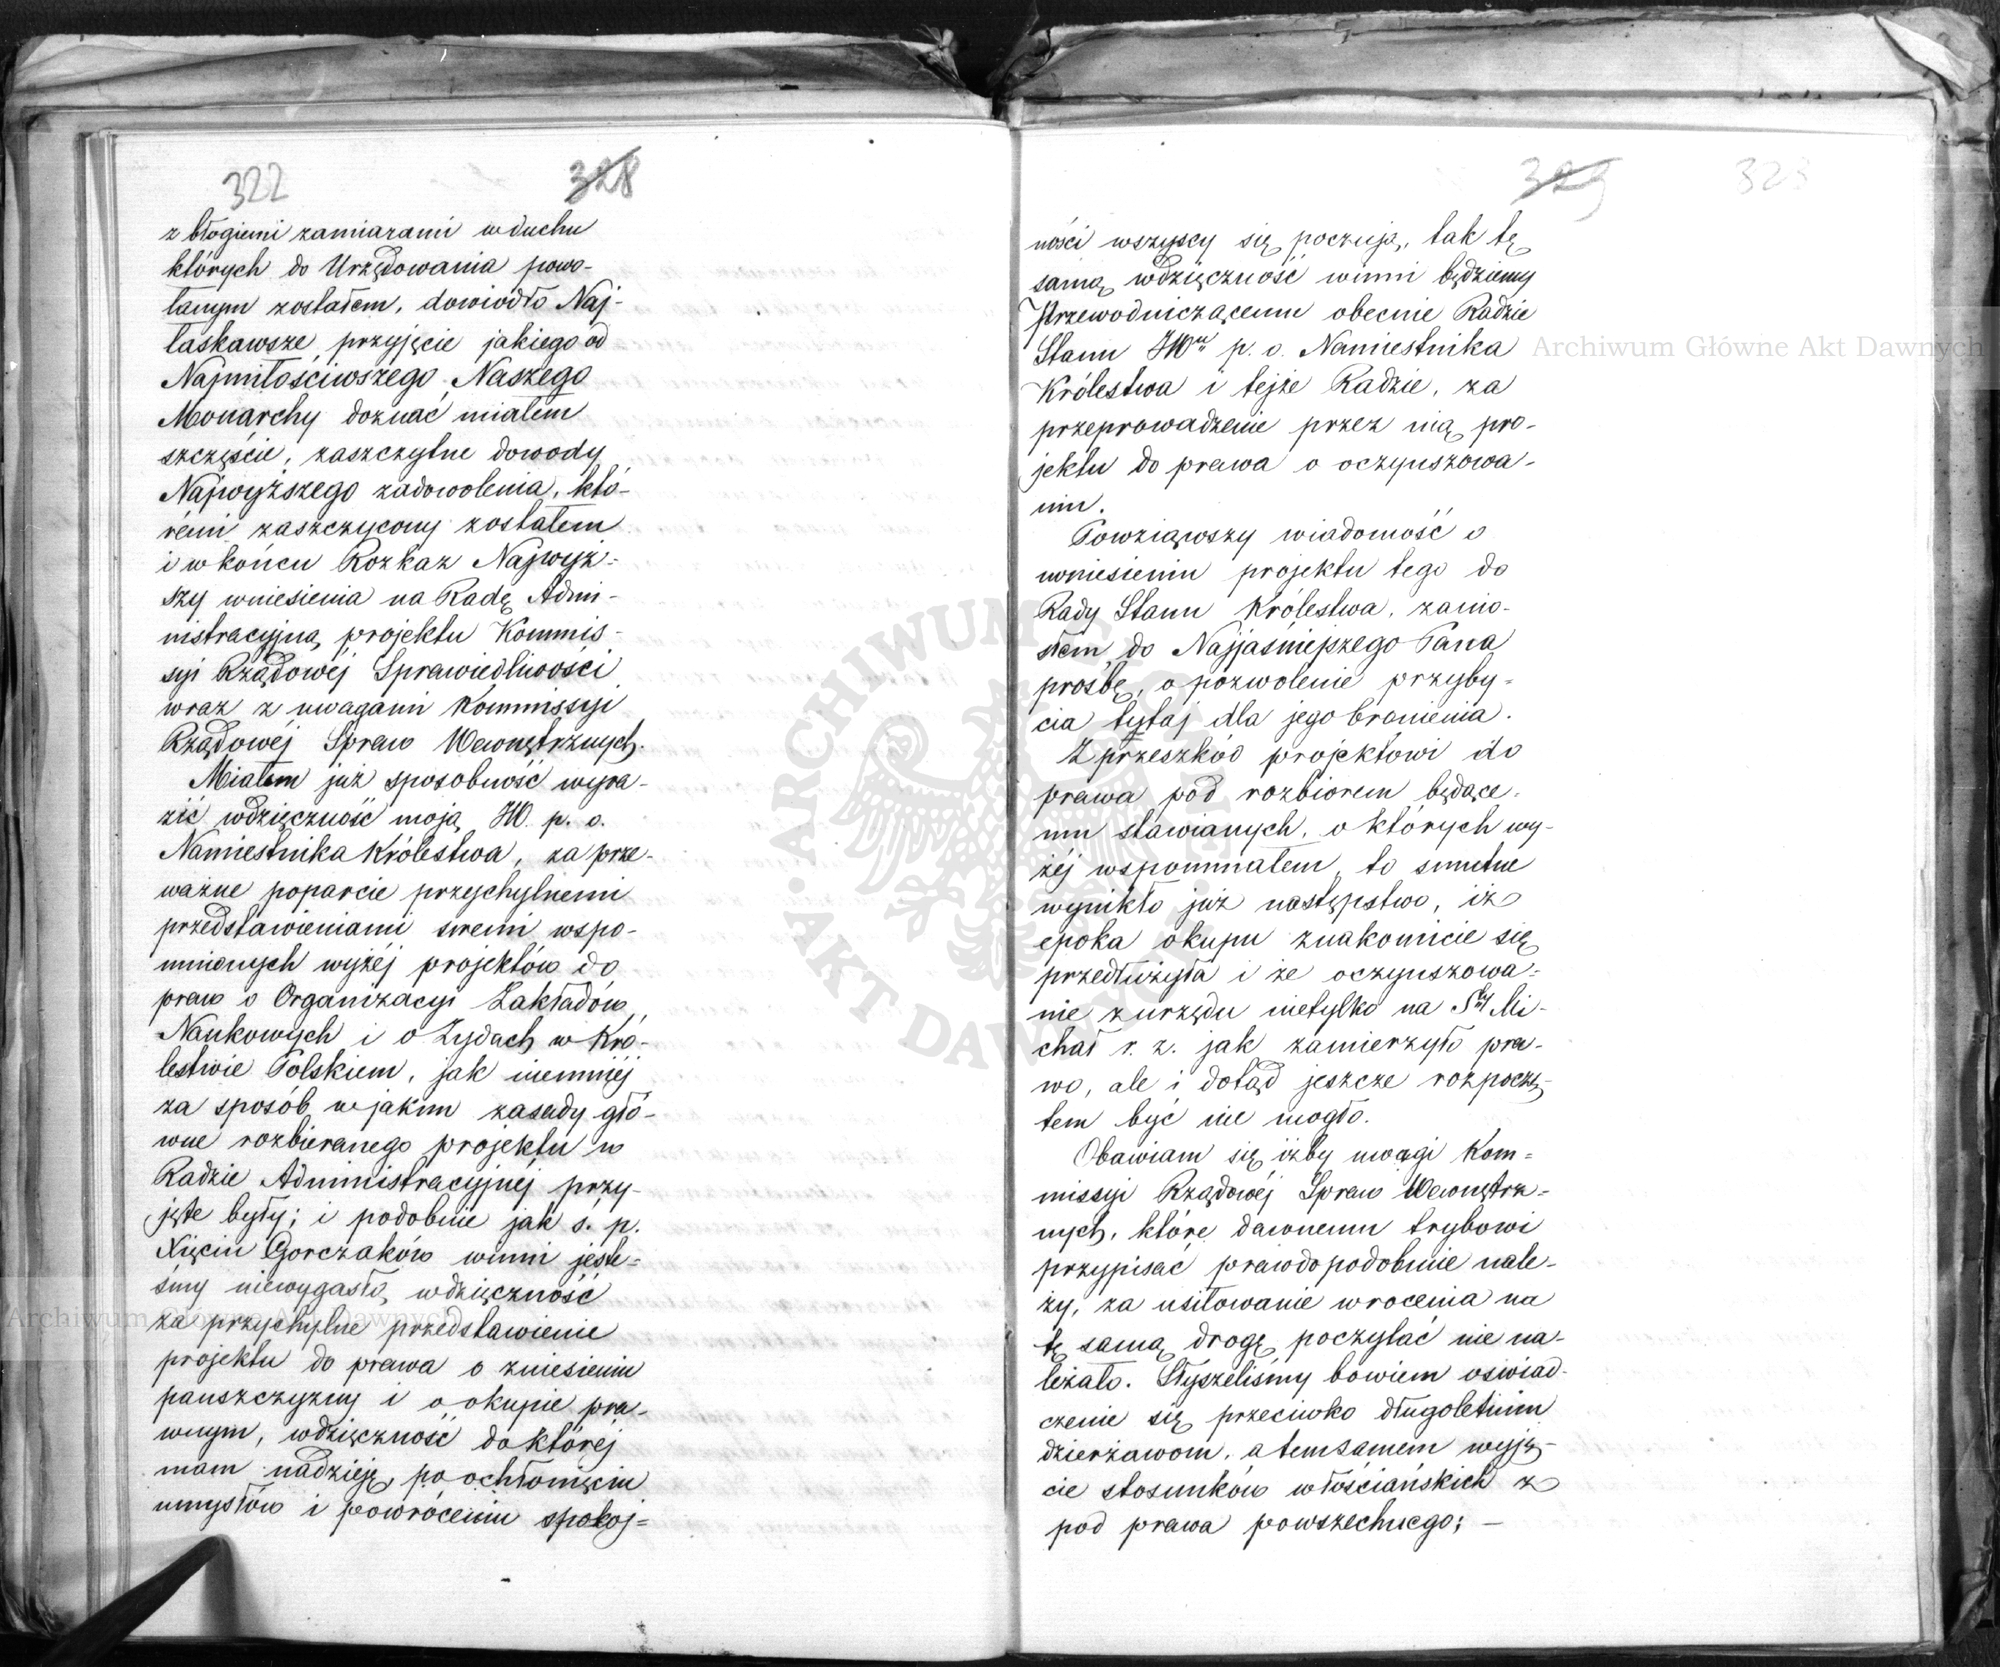 322 328
z błogiemi zamiarami w duchu
których do Urzędowania powo-
łanym zostałem, dowiodło Naj-
łaskawsze przyjęcie jakiego od
Najmiłościwszego Naszego
Monarchy doznać miałem
szczęście, zaszczytne dowody
Najwyższego zadowolenia, któ-
remi zaszczycony zostałem
i w końcu Rozkaz Najwyż-
szy wniesienia na Radę Admi-
nistracyjną projektu Kommis-
syi Rządowéj Sprawiedliwości
wraz z uwagami Kommissyi
Rządowéj Spraw Wewnętrznych.
Miałem już sposobność wyra-
zić wdzięczność moją JW. p. o.
Namiestnika Królestwa, za prze-
ważne poparcie przychylnemi
przedstawieniami swemi wspo-
mnionych wyżéj projektów do
praw o Organizacyi Zakładów
Naukowych i o Żydach w Kró-
lestwie Polskiem, jak niemniéj
za sposób w jakim zasady głó-
wne rozbieranego projektu w
Radzie Administracyjnéj przy-
jęte były; i podobnie jak ś. p.
Xięciu Gorczaków winni jeste-
śmy niewygasłą wdzięczność
za przychylne przedstawienie
projektu do prawa o zniesieniu
pańszczyzny i o okupie pra-
wnym, wdzięczność do któréj
mam nadzieję, po ochłonięciu
umysłów i powróceniu spokoj-
329 323
ności wszyscy się poczują, tak tę
samą wdzięczność winni będziemy
Przewodniczącemu obecnie Radzie
Stanu JWmu p. o. Namiestnika
Królestwa i tejże Radzie, za
przeprowadzenie przez nią pro-
jektu do prawa o oczynszowa-
niu.
Powziąwszy wiadomość o
wniesieniu projektu tego do
Rady Stanu Królestwa, zanio-
słem do Najjaśniejszego Pana
prośbę, o pozwolenie przyby-
cia tytaj dla jego bronienia.
Z przeszkód projektowi do
prawa pod rozbiorem będące-
mu stawianych, o których wy-
żéj wspomniałem, to smutne
wynikło już następstwo, iż
epoka okupu znakomicie się
przedłużyła i że oczynszowa-
nie z urzędu nietylko na Sty Mi-
chał r. z. jak zamierzyło pra-
wo, ale i dotąd jeszcze rozpoczę-
tem być nie mogło.
Obawiam się iżby uwagi Kom-
missyi Rządowéj Spraw Wewnętrz-
nych, które dawnemu trybowi
przypisać prawdopodobnie nale-
ży, za usiłowanie wrócenia na
tę samą drogę poczytać nie na-
leżało. Słyszeliśmy bowiem oświad-
czenie się przeciwko długoletnim
dzierżawom, a temsamem wyję-
cie stosunków włościańskich z
pod prawa powszechnego; —
Archiwum Główne Akt Dawnych
Archiwum Główne Akt Dawnych
ARCHIWUM GŁÓWNE AKT DAWNYCH